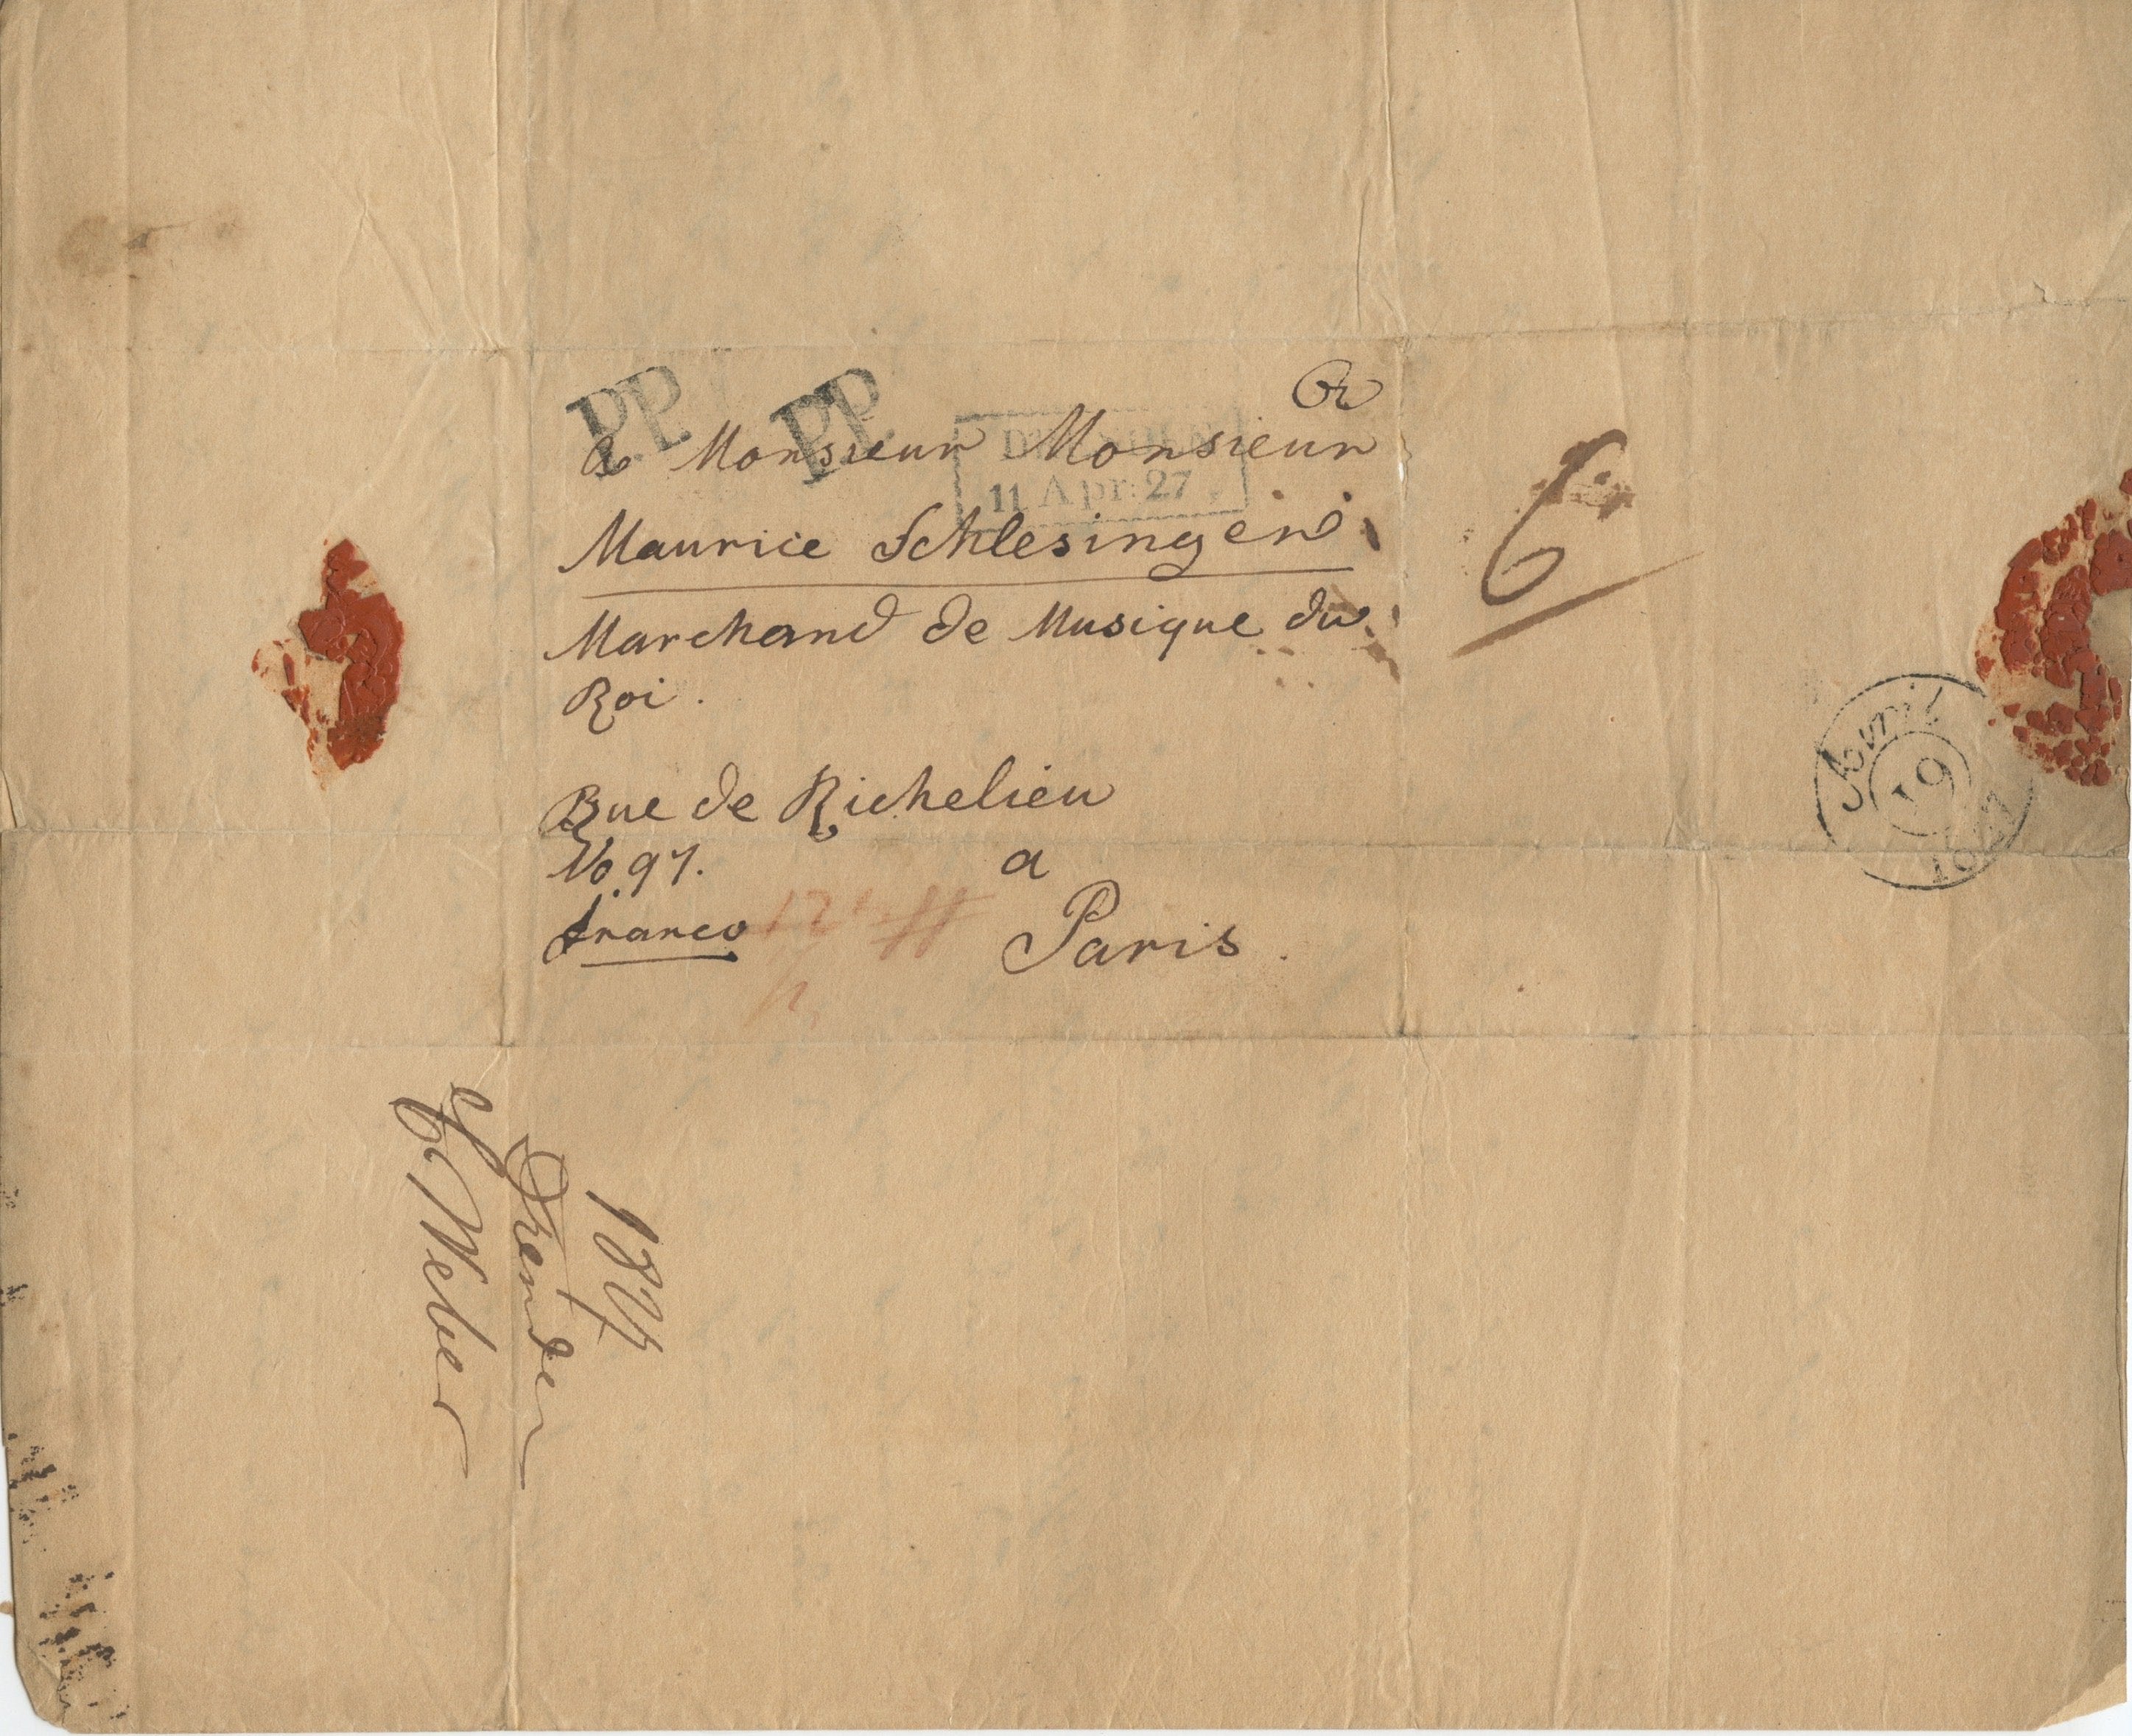 P.P. P.P.
a Monsieur Monsieur
11 Apr: 27
Maurice Schlesinger
Marchand de Musique du
Roi.
6
Rue de Richelieu
No. 97. a
franco Paris.
Avril
19
1827
Weber